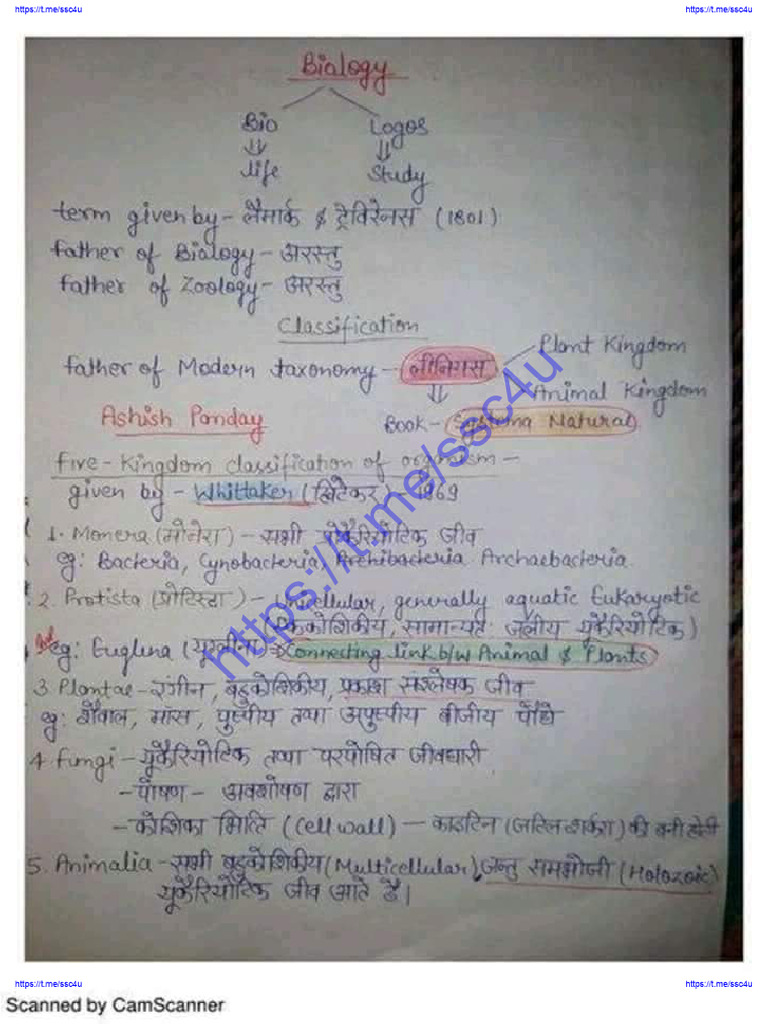 https://t.me/ssc4u https://t.me/ssc4u
Biology
Bio Logos
life Study
term given by - लैमार्क & ट्रेविरेनस (1801)
father of Biology - अरस्तु
father of Zoology - अरस्तु
Classification
Plant Kingdom
father of Modern taxonomy - लीनियस
Animal Kingdom
Ashish Panday Book - Systema Natural
five - Kingdom classification of organism -
given by - Whittaker (ह्विटेकर) 1969
1. Monera (मोनेरा) - सभी प्रोकैरियोटिक जीव
eg: Bacteria, Cynobacteria, Archibacteria Archaebacteria
2. Protista (प्रोटिस्टा) - Unicellular, generally aquatic Eukaryotic
(एककोशिकीय, सामान्यतः जलीय यूकैरियोटिक)
eg: Euglina (यूग्लीना) → Connecting link b/w Animal & Plants
3. Plantae - रंगीन, बहुकोशिकीय, प्रकाश संश्लेषक जीव
eg: शैवाल, मॉस, पुष्पीय तथा अपुष्पीय बीजीय पौधे
4. fungi - यूकैरियोटिक तथा परपोषित जीवधारी
- पोषण - अवशोषण द्वारा
- कोशिका भित्ति (Cell wall) - काइटिन (जटिल शर्करा) की बनी होती
5. Animalia - सभी बहुकोशिकीय (Multicellular), जन्तु समभोजी (Holozoic)
यूकैरियोटिक जीव आते है।
https://t.me/ssc4u
https://t.me/ssc4u https://t.me/ssc4u
Scanned by CamScanner